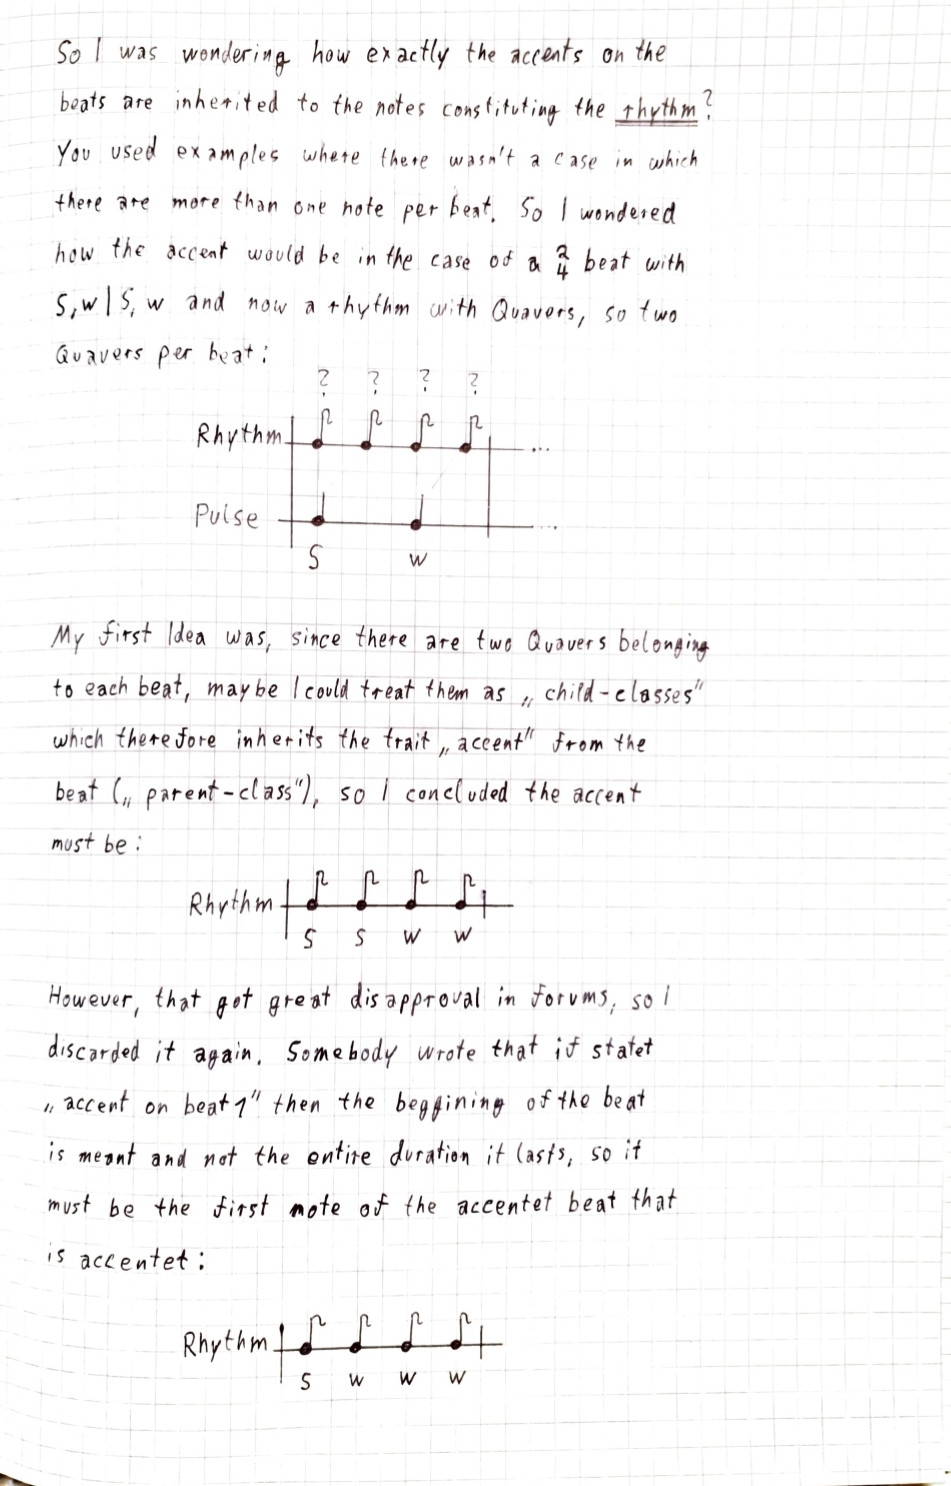 So I was wondering how exactly the accents on the
beats are inherited to the notes constituting the rhythm?
You used examples where there wasn't a case in which
there are more than one note per beat. So I wondered
how the accent would be in the case of a 2/4 beat with
S, w | S, w and now a rhythm with Quavers, so two
Quavers per beat:
? ? ? ?
Rhythm ...
Pulse ...
S w
My first Idea was, since there are two Quavers belonging
to each beat, maybe I could treat them as „child-classes"
which therefore inherits the trait „accent" from the
beat („parent-class"), so I concluded the accent
must be:
Rhythm
S S w w
However, that got great disapproval in forums, so I
discarded it again. Somebody wrote that if statet
„accent on beat 1" then the beggining of the beat
is meant and not the entire duration it lasts, so it
must be the first note of the accentet beat that
is accentet:
Rhythm
S w w w